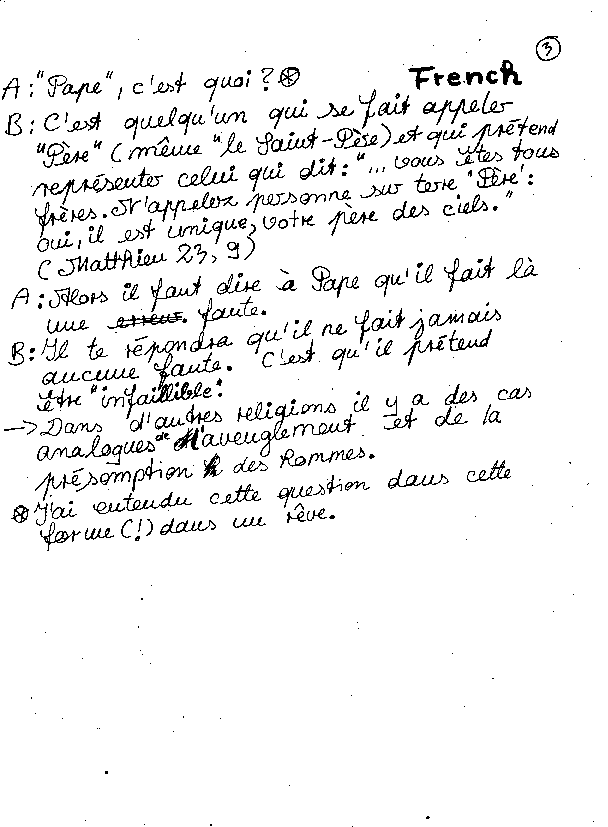 ③
French
A: "Pape", c'est quoi? ⊛
B: C'est quelqu'un qui se fait appeler
"Père" (même "le Saint-Père) et qui prétend
représenter celui qui dit: "... vous êtes tous
frères. N'appelez personne sur terre 'Père':
oui, il est unique, votre père des ciels."
(Matthieu 23, 9)
A: Alors il faut dire à Pape qu'il fait là
une erreur. faute.
B: Il te répondra qu'il ne fait jamais
aucune faute. C'est qu'il prétend
être "infaillible".
-> Dans d'autres religions il y a des cas
analogues de l'aveuglement et de la
présomption des hommes.
⊛ J'ai entendu cette question dans cette
forme (!) dans un rêve.